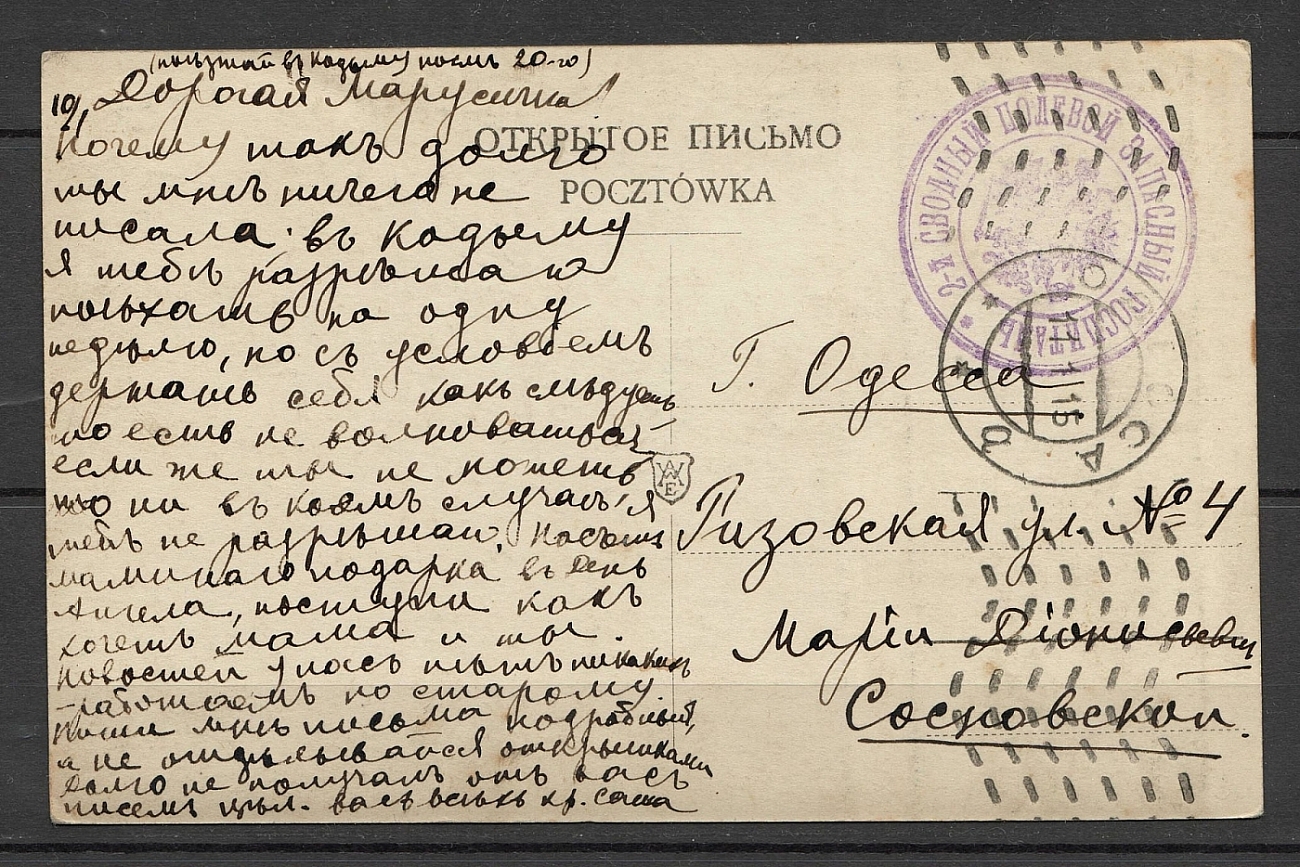 (поѣзжай въ Кодыму послѣ 20-го)
10/1 Дорогая Марусичка
Почему такъ долго
ты мнѣ ничего не
писала. въ Кодыму
я тебѣ разрѣшаю
поѣхать на одну
недѣлю, но съ условіемъ
держать себя какъ слѣдуетъ
то есть не волноваться
если же ты не можешь
то ни въ коемъ случаѣ я
тебѣ не разрѣшаю. Насчетъ
маминаго подарка въ День
Ангела, поступи какъ
хочетъ мама и ты.
Новостей у насъ нѣтъ никакихъ
работаемъ по старому.
Пиши мнѣ письма подробныя,
а не отдѣлывайся открытками
Долго не получалъ отъ васъ
писемъ цѣл. васъ всѣхъ кр. Саша
ОТКРЫТОЕ ПИСЬМО
POCZTÓWKA
2-Й СВОДНЫЙ ПОЛЕВОЙ ЗАПАСНЫЙ ГОСПИТАЛЬ
ОДЕССА
17 1 15
AWE
Г. Одесса
Гизовская ул. № 4
Маріи Діонисьевн
Сосновской.